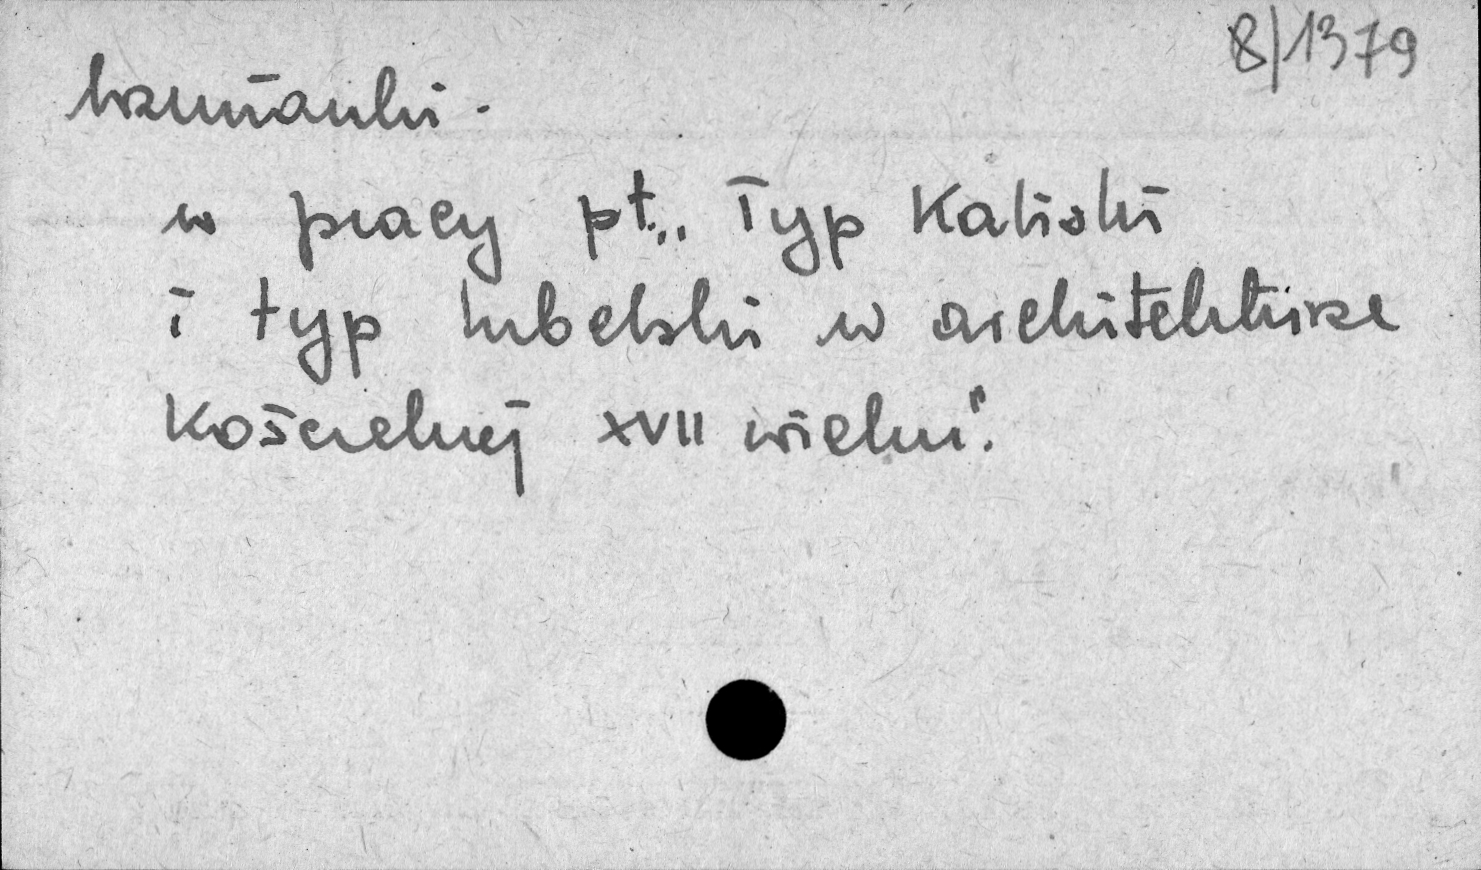 8/1379
wzmianki.
w pracy pt. „Typ Kaliski
i typ lubelski w architekturze
Kościelnej XVII wieku".